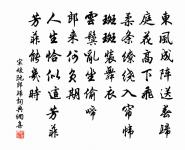 東風成陣送春歸
庭花高下飛
柔條繚繞入簾幃
斑斑裝舞衣
雲鬢亂坐偷啼
郎來何負期
人生恰似這芳菲
芳菲能幾時
宋媛阮郎歸